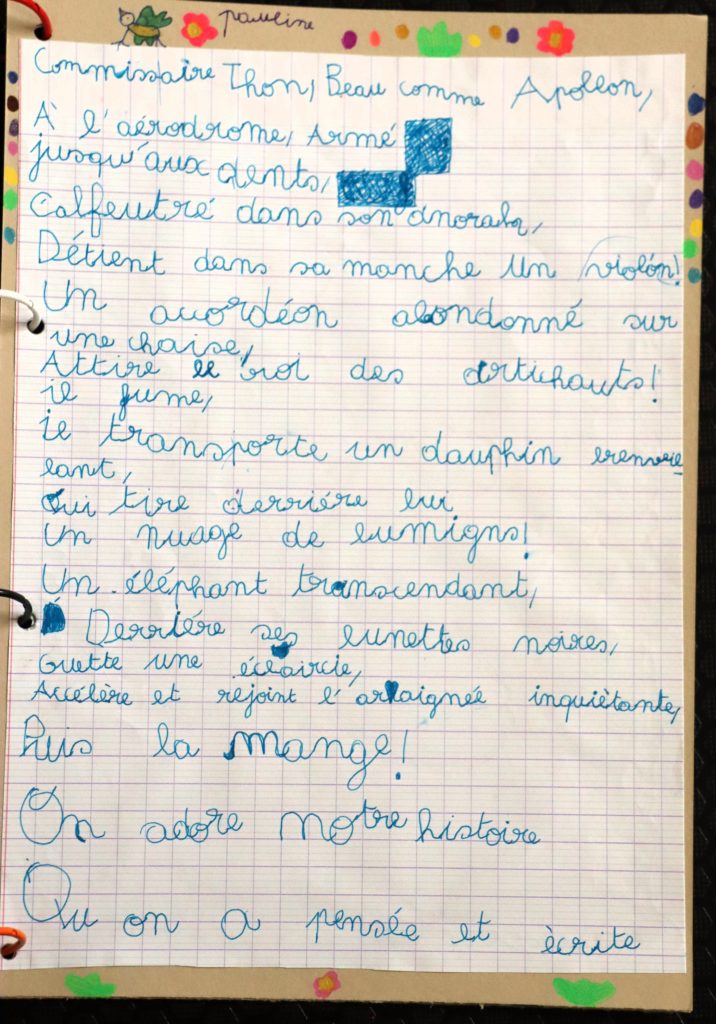 pauline
Commissaire Thon, Beau comme Apollon,
À l'aérodrome, Armé
jusqu'aux dents,
Calfeutré dans son anorak,
Détient dans sa manche un violon!
Un accordéon abondonné sur
une chaise,
Attire le roi des artichauts!
il fume,
il transporte un dauphin
lant,
Qui tire derriére lui
Un nuage de lumigns!
Un éléphant transcendant,
Derriére ses lunettes noires,
Guette une éclaircie,
Accélère et rejoint l'arraignée inquiètante,
Puis la mange!
On adore notre histoire
Qu on a pensée et ècrite